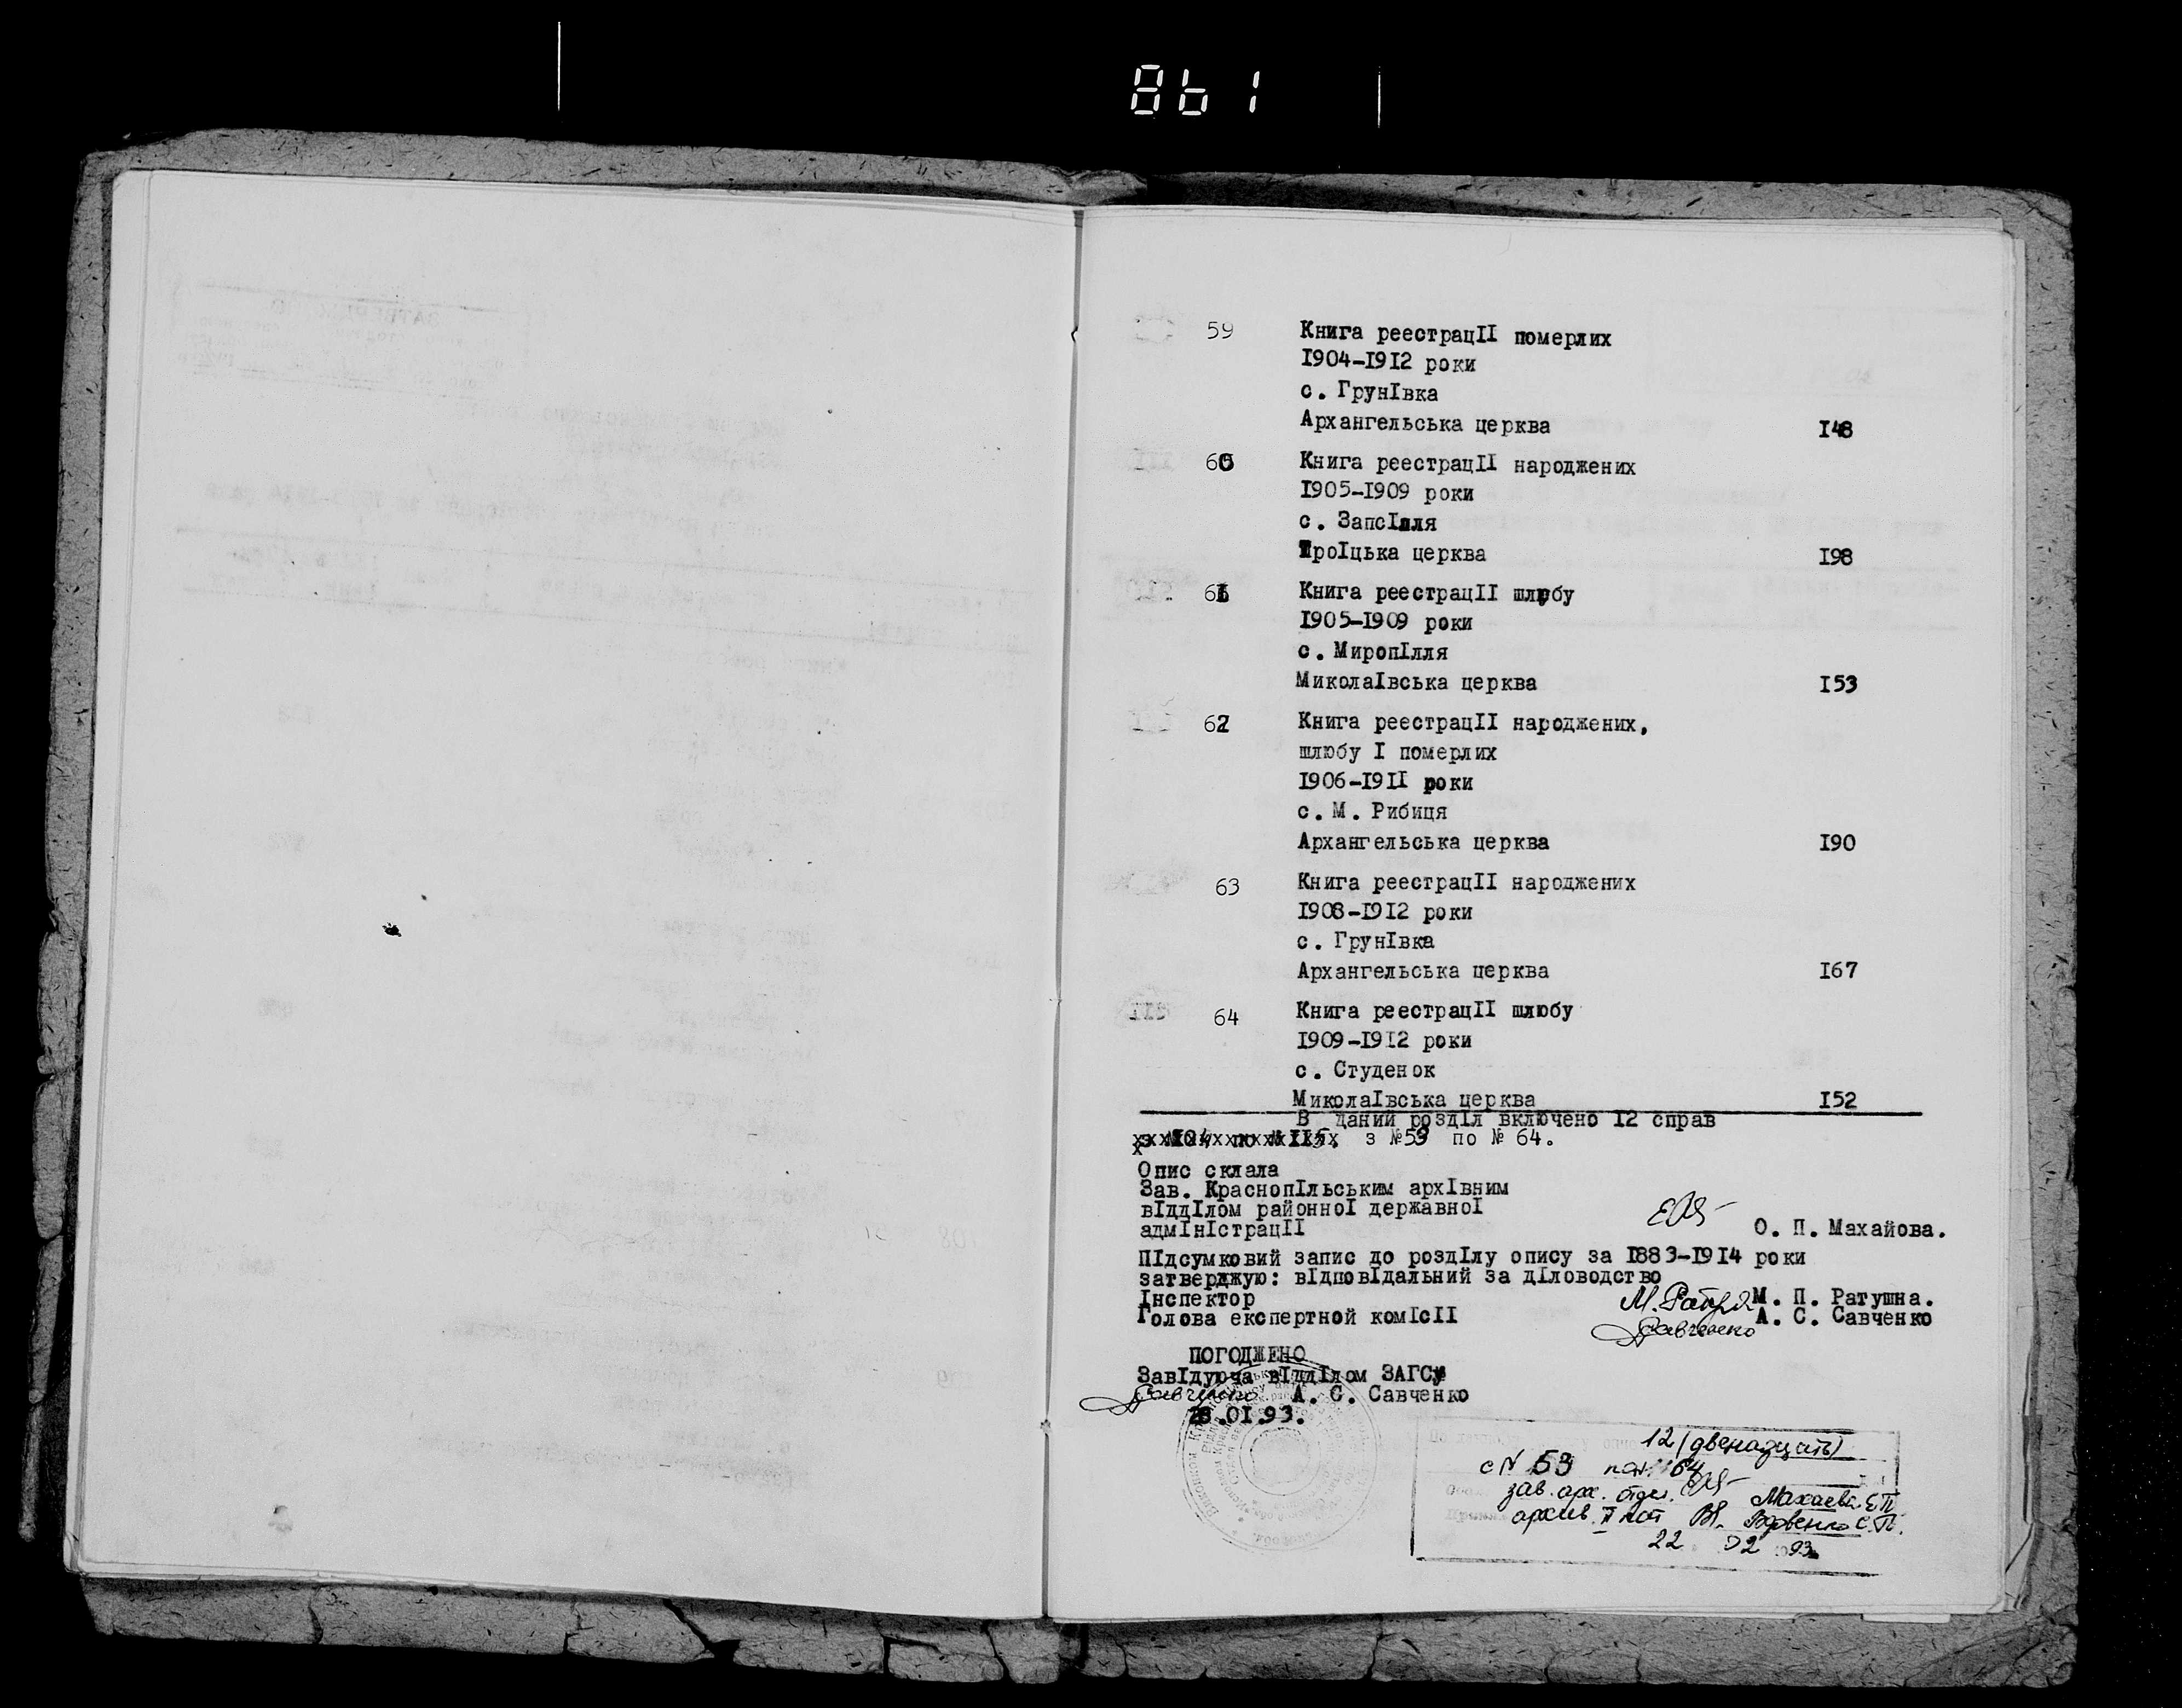 861
59 Книга реестрацII померлих
I904-I9I2 роки
с. ГрунIвка
Архангельська церква I48
60 Книга реестрацII народжених
I905-I909 роки
с. ЗапсIлля
ТроIцька церква I98
6I Книга реестрацII шлюбу
I905-I909 роки
с. МиропIлля
МиколаIвська церква I53
62 Книга реестрацII народжених,
шлюбу I померлих
I906-I9II роки
с. М. Рибиця
Архангельська церква I90
63 Книга реестрацII народжених
I908-I9I2 роки
с. ГрунIвка
Архангельська церква I67
64 Книга реестрацII шлюбу
I909-I9I2 роки
с. Студенок
МиколаIвська церква I52
В даний роздIл включено I2 справ
з №59 по № 64.
Опис склала
Зав. КраснопIльським архIвним
вIддIлом районноI державноI
адмIнIстрацII О. П. Махайова.
ПIдсумковий запис до роздIлу опису за I883-I9I4 роки
затверджую: вIдповIдальний за дIловодство
Iнспектор М. П. Ратушна.
Голова експертной комIсII Савченко А. С. Савченко
ПОГОДЖЕНО
ЗавIдуюча вIддIлом ЗАГСу
Савченко А. С. Савченко
28.0I.93.
12 (двенадцать)
с № 53 по 64
зав. арх. отдел. Махаева Е.П.
архив. II кат
22 02 93